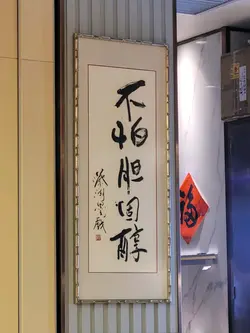 不怕胆固醇
福